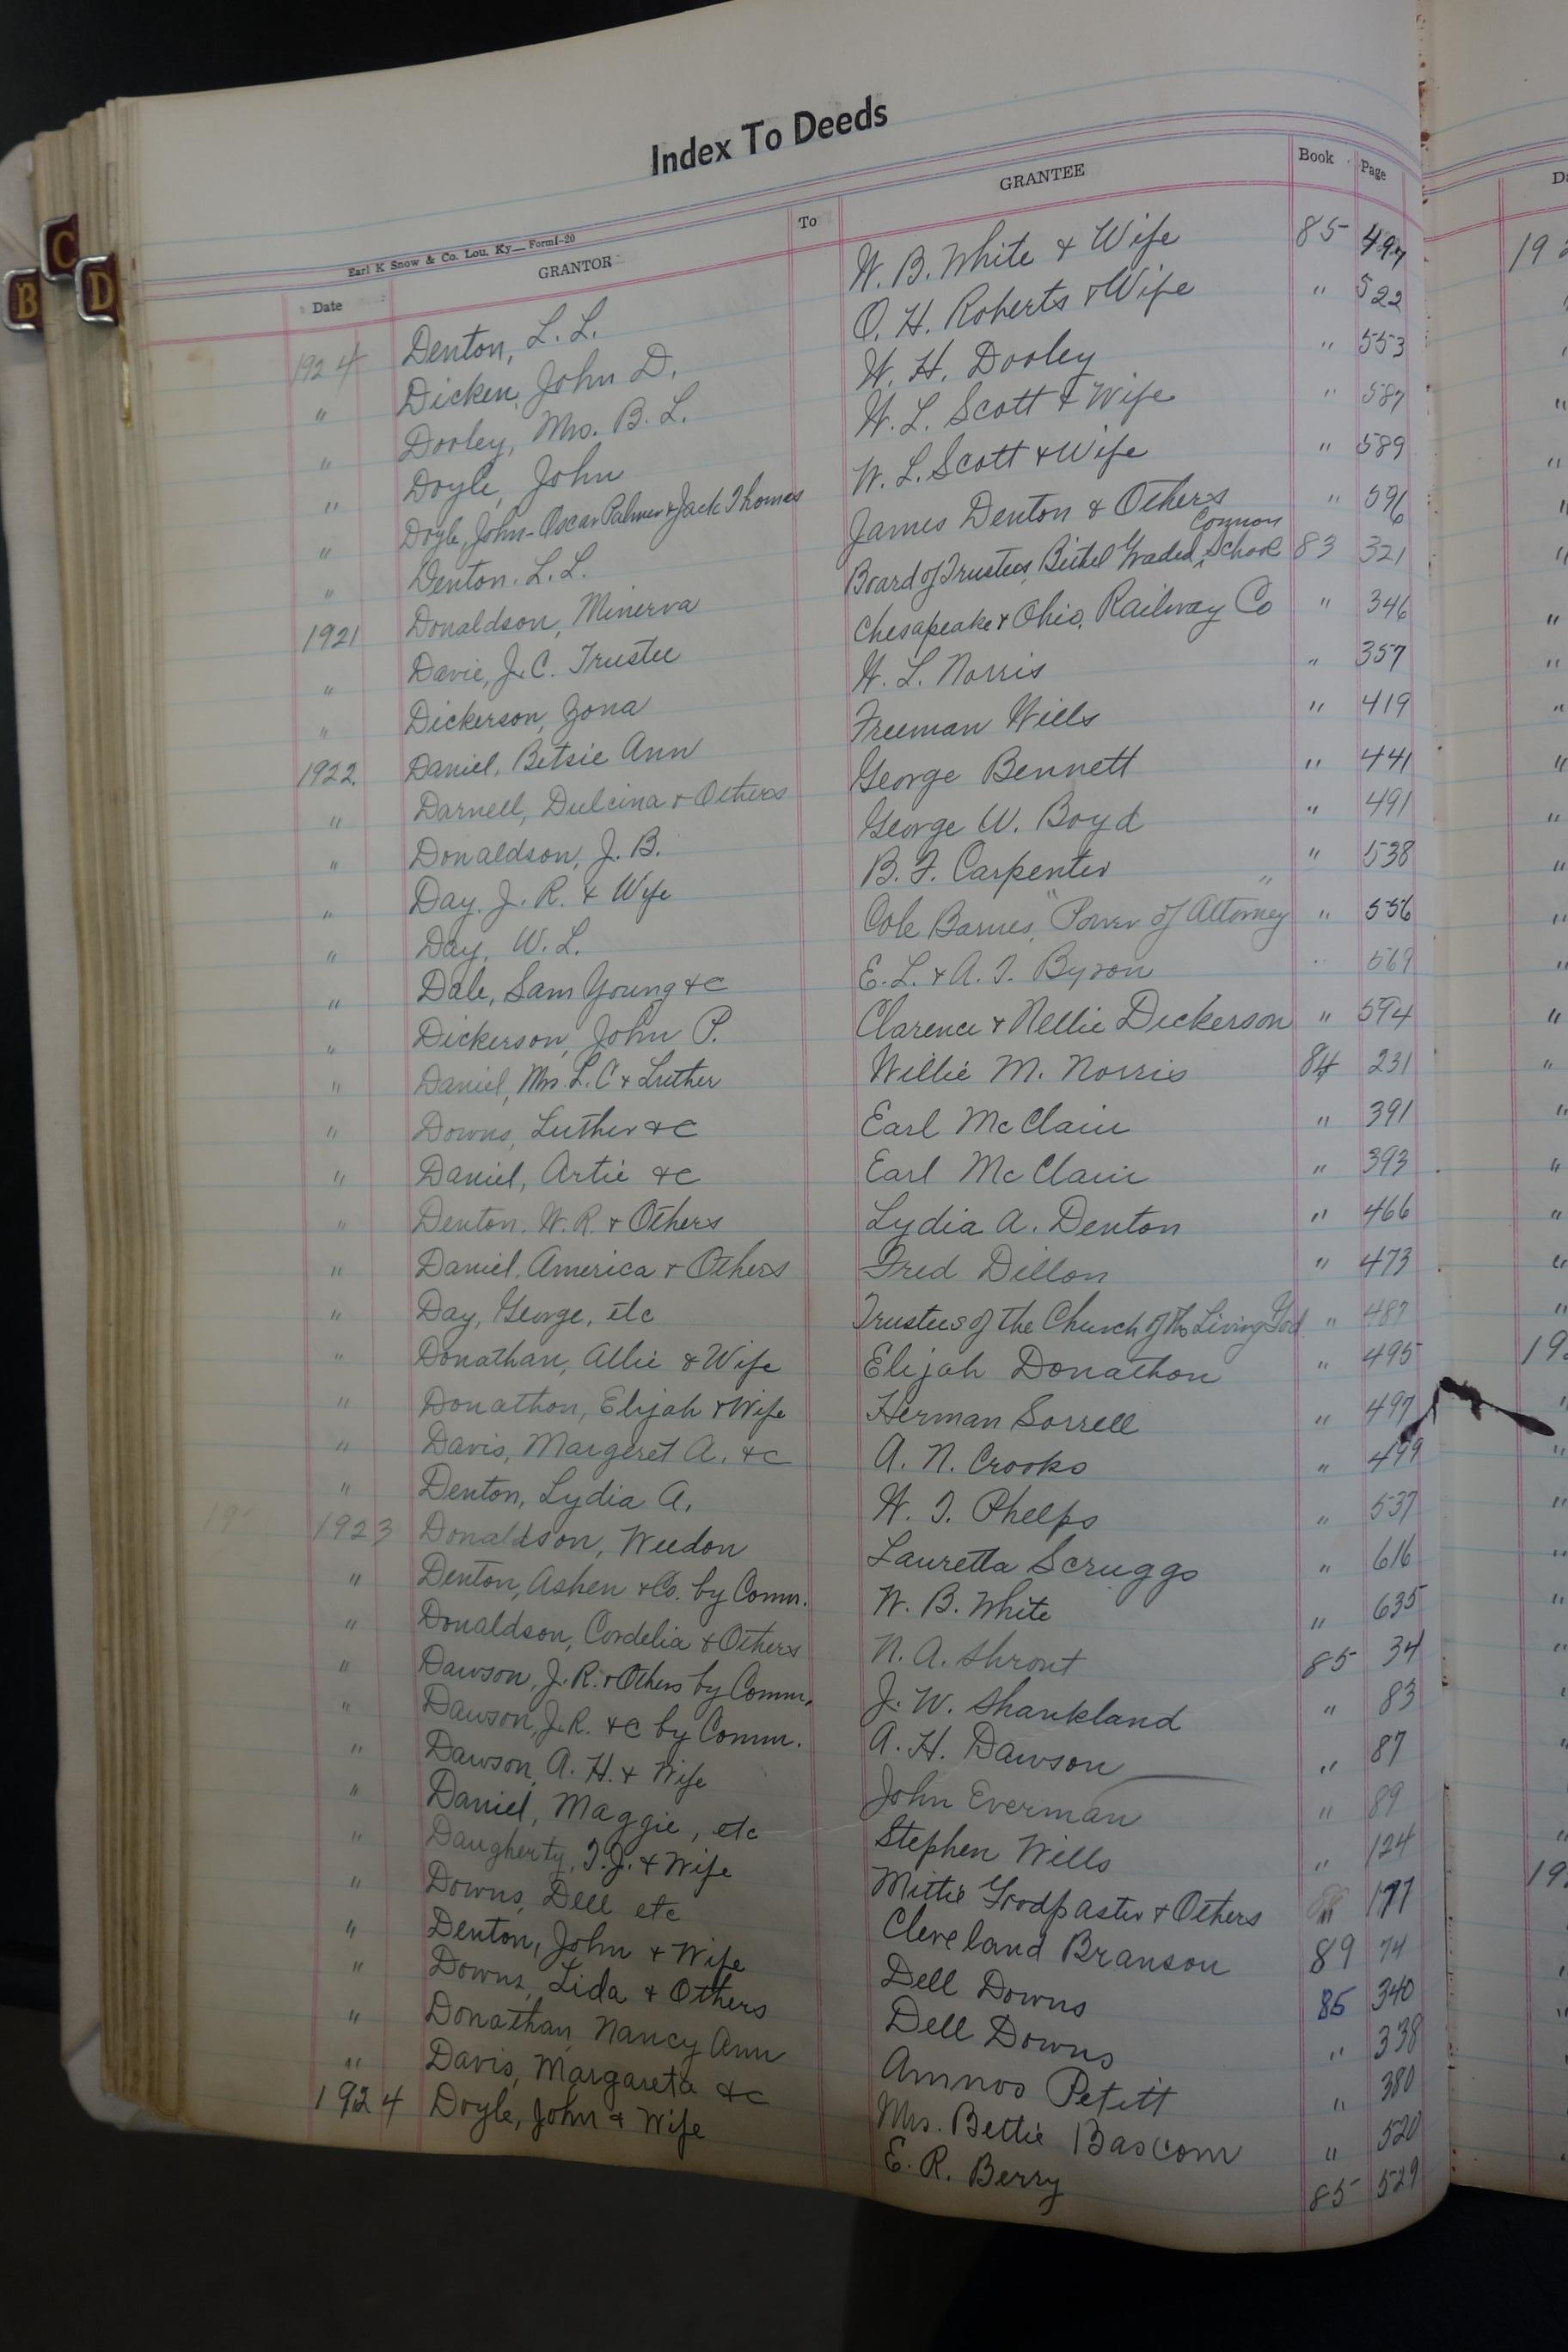 Index To Deeds
Earl K Snow & Co. Lou. Ky__ Form1-20
Date GRANTOR To GRANTEE Book Page
B C D
1924 Denton, L. L. W. B. White & Wife 85 497
" Dicken, John D. O. H. Roberts & Wife " 522
" Dooley, Mrs. B. L. W. H. Dooley " 553
" Doyle, John W. L. Scott & Wife " 587
" Doyle, John-Oscar Palmer & Jack Thomas W. L. Scott & Wife " 589
" Denton. L. L. James Denton & Others " 596
1921 Donaldson, Minerva Board of Trustees, Bethel Graded Common School 83 321
" Davie, J. C. Trustee Chesapeake & Ohio, Railway Co " 346
" Dickerson, Zona H. L. Norris " 357
1922 Daniel, Betsie Ann Freeman Wills " 419
" Darnell, Dulcina & Others George Bennett " 441
" Donaldson, J. B. George W. Boyd " 491
" Day. J. R. & Wife B. F. Carpenter " 538
" Day, W. L. Cole Barnes, "Power of Attorney" " 556
" Dale, Sam Young &c E. L. & A. T. Byron " 569
" Dickerson, John P. Clarence & Nellie Dickerson " 594
" Daniel, Mrs. L. C & Luther Willie M. Norris 84 231
" Downs, Luther &c Earl McClain " 391
" Daniel, Artie &c Earl McClain " 393
" Denton. W. R. & Others Lydia A. Denton " 466
" Daniel, America & Others Fred Dillon " 473
" Day, George, etc Trustees of the Church of the Living God " 487
" Donathan, Allie & Wife Elijah Donathon " 495
" Donathon, Elijah & Wife Herman Sorrell " 497
" Davis, Margeret A. &c A. N. Crooks " 499
" Denton, Lydia A. W. T. Phelps " 537
1923 Donaldson, Weedon Lauretta Scruggs " 616
" Denton, Ashen & Co. by Comm. W. B. White " 635
" Donaldson, Cordelia & Others N. A. Shrout 85 34
" Dawson, J. R. & Others by Comm. J. W. Shankland " 83
" Dawson, J. R. &c by Comm. A. H. Dawson " 87
" Dawson, A. H. & Wife John Everman " 89
" Daniel, Maggie, etc Stephen Wills " 124
" Daugherty, T. J. & Wife Mittie Goodpaster & Others " 177
" Downs, Dell etc Cleveland Branson 89 74
" Denton, John & Wife Dell Downs 85 340
" Downs, Lida & Others Dell Downs " 338
" Donathan, Nancy Ann Amnos Petitt " 380
" Davis, Margareta &c Mrs. Bettie Bascom " 520
1924 Doyle, John & Wife E. R. Berry 85 529